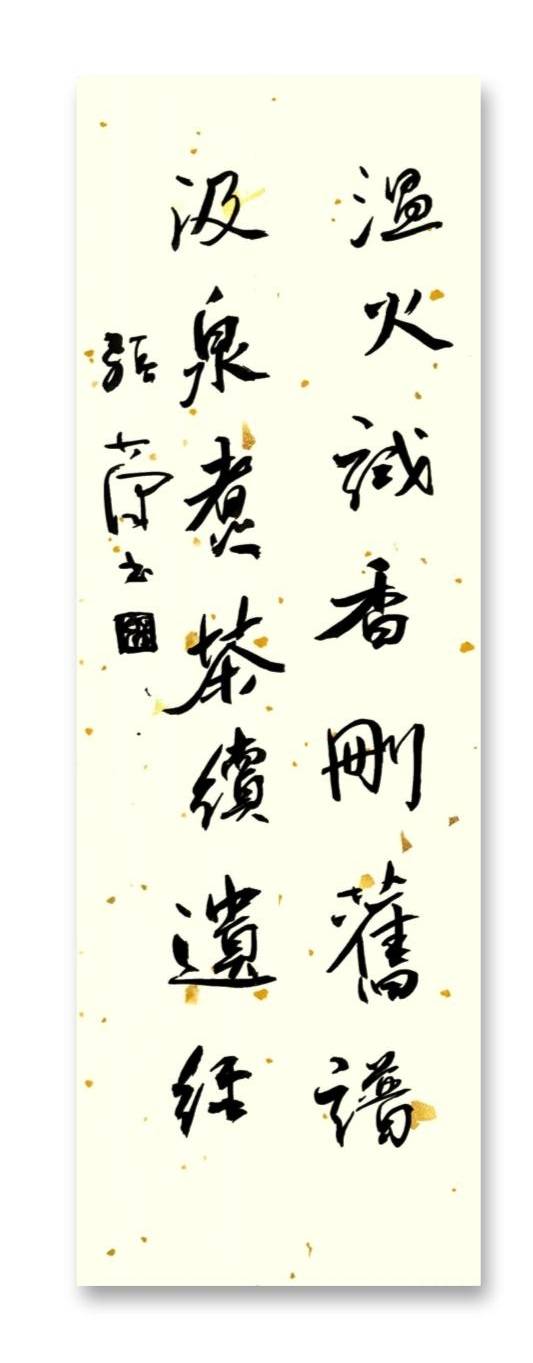 温火試香刪舊譜
汲泉煮茶續遺經
張蕚书